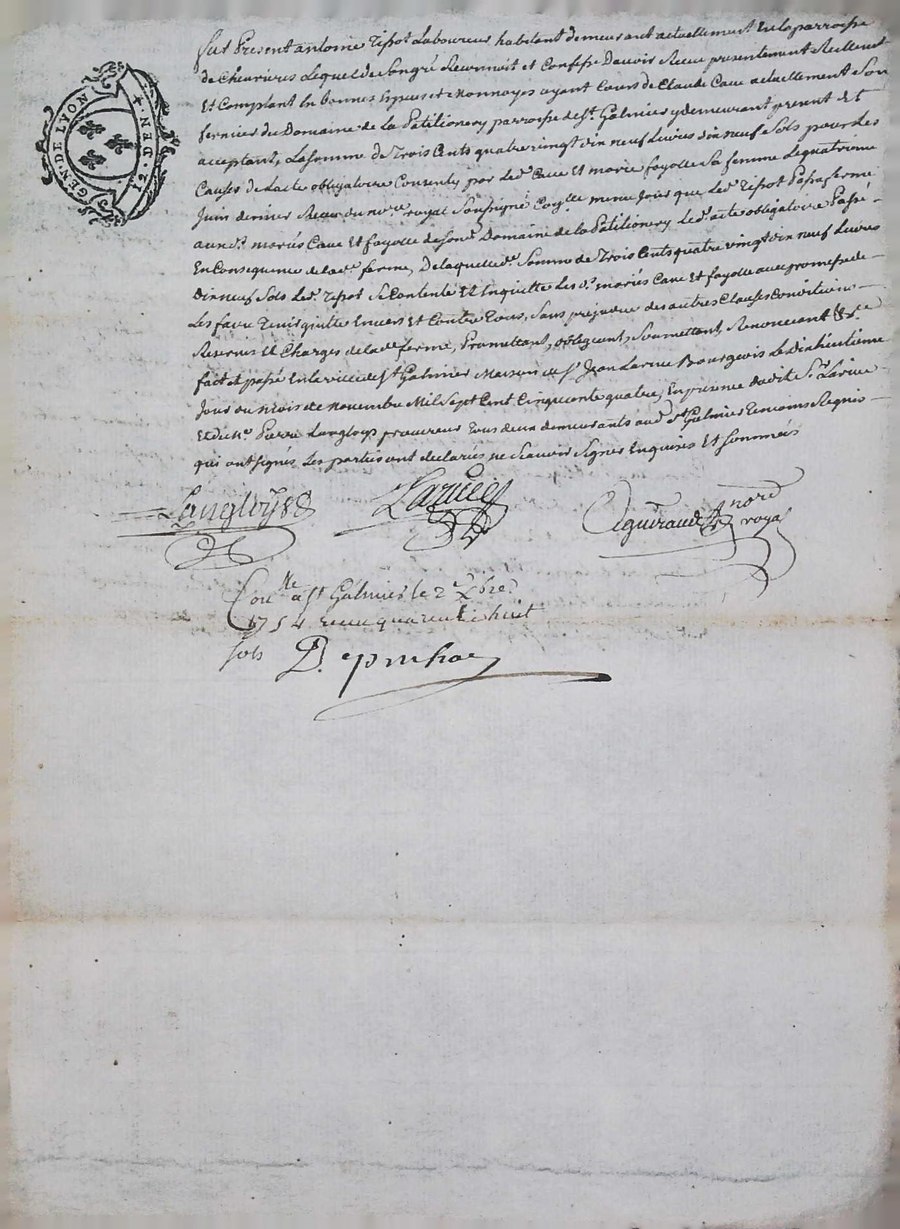 GEN. DE LYON
12. DEN. 4
fut Present antoine Tipot Laboureur habitant demeurant actuellement En la parroisse
de Chevrières Lequel de Son gré Reconnoit et Confesse Davoir Receu presentement Reellem.t
Et Comptant En bonnes Especes et Monnoyes ayant Cours de Claude Caue actuellement Son
fermier du Domaine de La Patilionery parroisse de S.t Galmier y demeurant present Et
acceptant, La Somme de Trois Cents quatre vingt dix neuf Livres dix neuf Sols pour Les
Causes de Lacte obligatoire Consenty par Led. Caue Et marie fayolle Sa femme Le quatrieme
Juin dernier Receu du no.re royal Soussigné meme Jour que Led. Tipot Passa ferme
aux d. mariés Caue Et fayolle de Son d. Domaine de La Patilionery Led. acte obligatoire Passé
En Consequence de lad. ferme, De laquelle d. Somme de Trois Cents quatre vingt dix neuf Livres
Dix neuf Sols Led. Tipot Se Contente Et En quitte Les d. mariés Caue Et fayolle avec promesse de
Les faire Tenir quitte Envers Et Contre Tous, Sans prejudice des autres Clauses Conditions
Reserves Et Charges de lad. ferme, Promettant, obligeant, Soumettant, Renonceant &c
fait et passé En la ville de S.t Galmier Maison de S.r Jean Larue Bourgeois Le Dixhuitieme
Jour du Mois de Novembre Mil Sept Cent Cinquante quatre, En presence dudit S.r Larue
Et de M.e Pierre Langloys procureur Tous deux demeurants aud. S.t Galmier Temoins Requis
qui ont signés Les parties ont declarées ne Scavoir Signer Enquises Et Sommées
Langloys
Larue
Aguiraud no.re royal
Con.lle a S.t Galmier le 2e Xbre
1754 receu quarente huit
sols